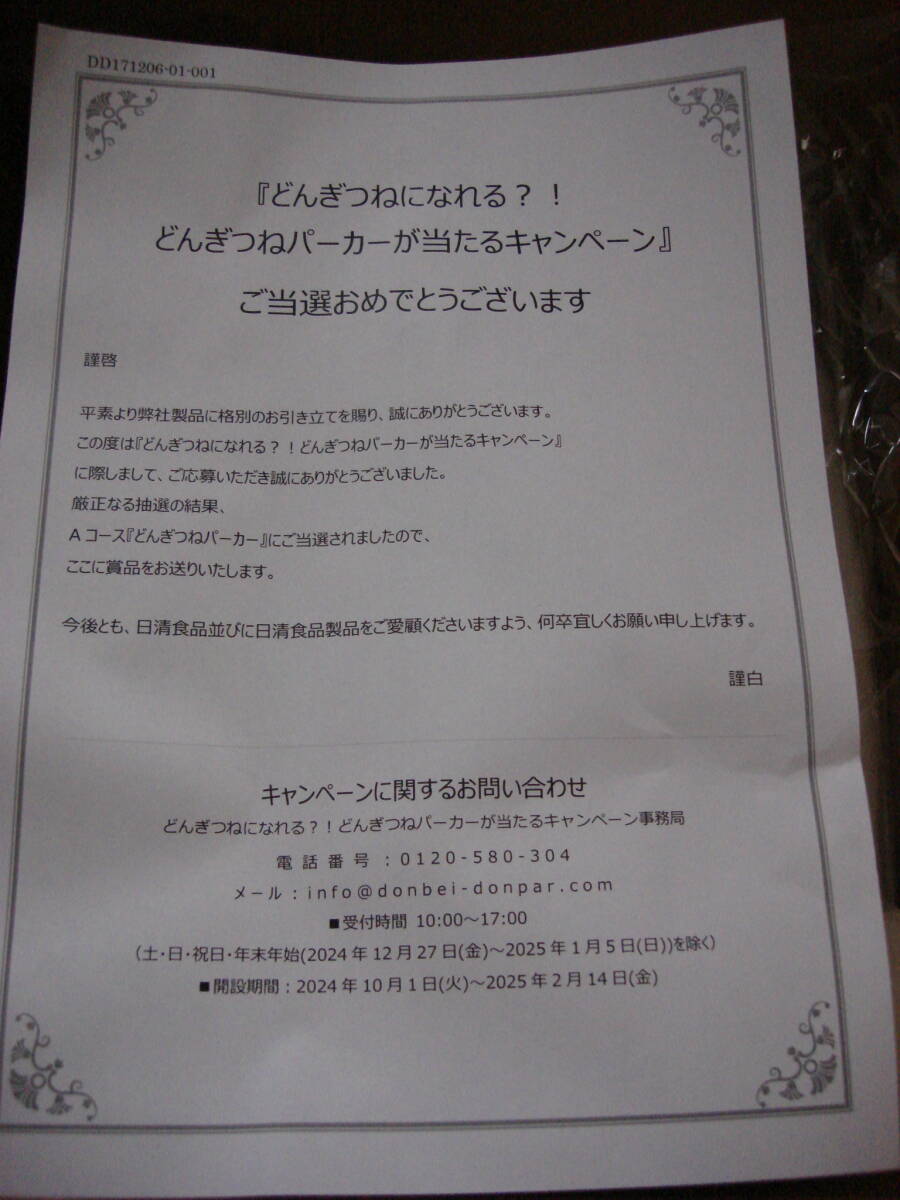 DD171206-01-001
『どんぎつねになれる？！
どんぎつねパーカーが当たるキャンペーン』
ご当選おめでとうございます
謹啓
平素より弊社製品に格別のお引き立てを賜り、誠にありがとうございます。
この度は『どんぎつねになれる？！どんぎつねパーカーが当たるキャンペーン』
に際しまして、ご応募いただき誠にありがとうございました。
厳正なる抽選の結果、
Aコース『どんぎつねパーカー』にご当選されましたので、
ここに賞品をお送りいたします。
今後とも、日清食品並びに日清食品製品をご愛顧くださいますよう、何卒宜しくお願い申し上げます。
謹白
キャンペーンに関するお問い合わせ
どんぎつねになれる？！どんぎつねパーカーが当たるキャンペーン事務局
電話番号：0120-580-304
メール：info@donbei-donpar.com
■受付時間 10:00～17:00
（土・日・祝日・年末年始(2024年12月27日(金)～2025年1月5日(日))を除く）
■開設期間：2024年10月1日(火)～2025年2月14日(金)